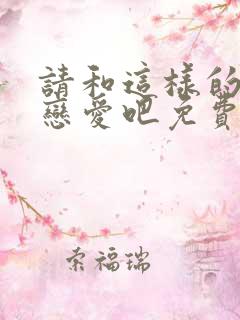 請和這樣的
戀愛吧免費
索福瑞